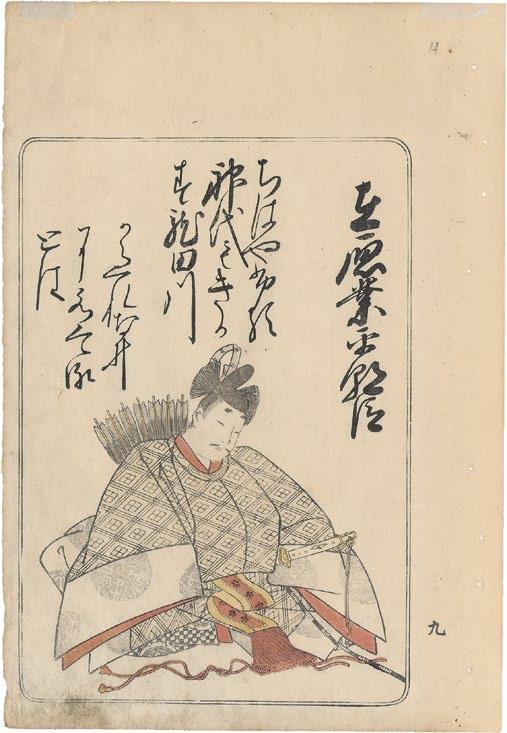 在原業平朝臣
ちはやふる
神代もきか
す龍田川
からくれなゐ
に水くゝる
とは
九